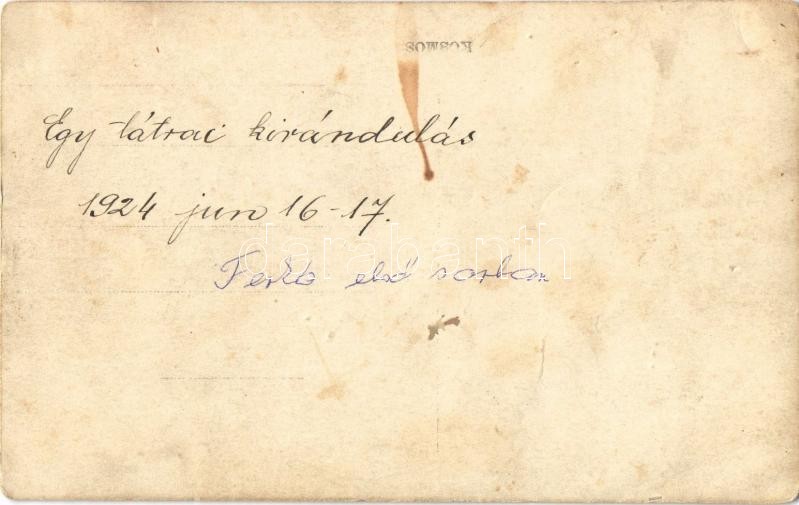 KOSMOS
Egy tátrai kirándulás
1924 jun 16-17.
első sorban
darabanth